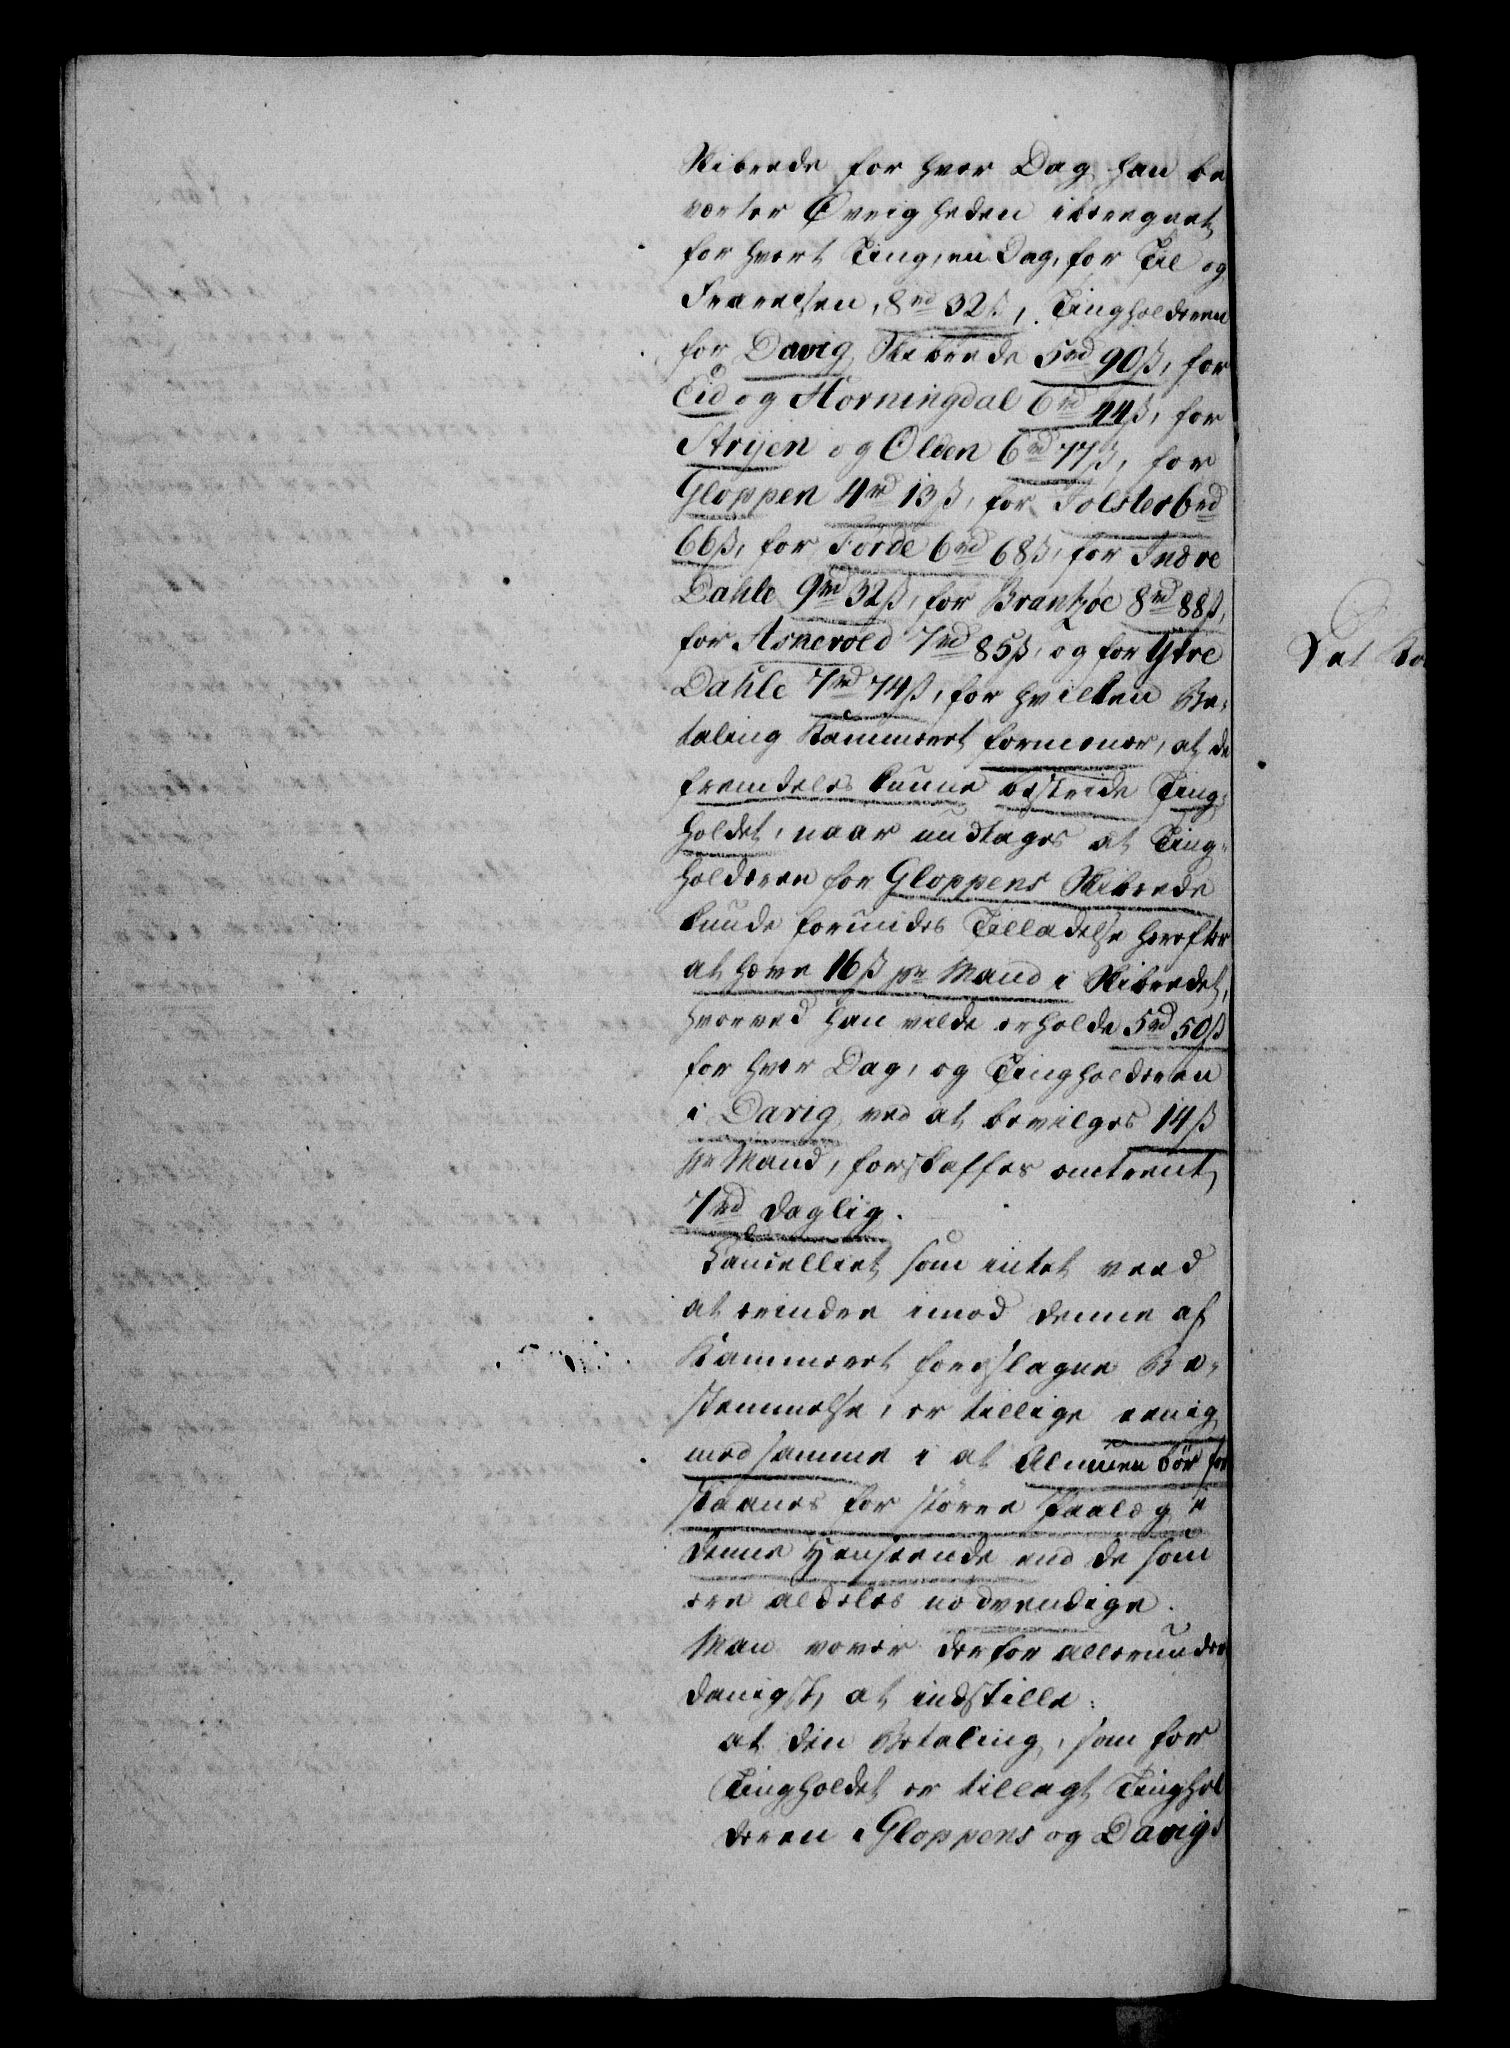 Skibrede for hver Dag han be
værter Øvrigheden iberegnet
for hvert Ting, en Dag, for Til og
Frareisen, 8rd 32ß, Tingholderen
for Davig Skibrede 5rd 90ß, for
Eid og Horningdal 6rd 44ß, for
Strijen og Olden 6rd 77ß, for
Gloppen 4rd 13ß, for Jolster 6rd
66ß, for Förde 6rd 68ß, for Indre
Dahle 9rd 32ß, for Brantzöe 8rd 88ß,
for Askevold 7rd 85ß, og for Ytre
Dahle 7rd 74ß, for hvilken Be-
taling Kammeret formener, at de
fremdeles kunne bestride Ting-
holdet, naar undtages at Ting-
holderen for Gloppens Skibrede
kunde forundes Tilladelse herefter
at hæve 16ß pr Mand i Skibredet,
hvorved han vilde erholde 5rd 50ß
for hver Dag, og Tingholderen
i Davig ved at bevilges 14ß
pr Mand, forskaffes omtrent
7rd daglig.
Cancelliet som intet veed
at erindre imod denne af
Kammeret foreslagne Be-
stemmelse, er tillige eenig
med samme i at Almuen bör for
skaanes for större Paalæg i
denne Henseende end de som
ere aldeles nødvendige.
Man vover derfor allerunder
danigst at indstille:
at den Betaling, som for
Tingholdet er tillagt Tinghol
deren i Gloppens og Davigs